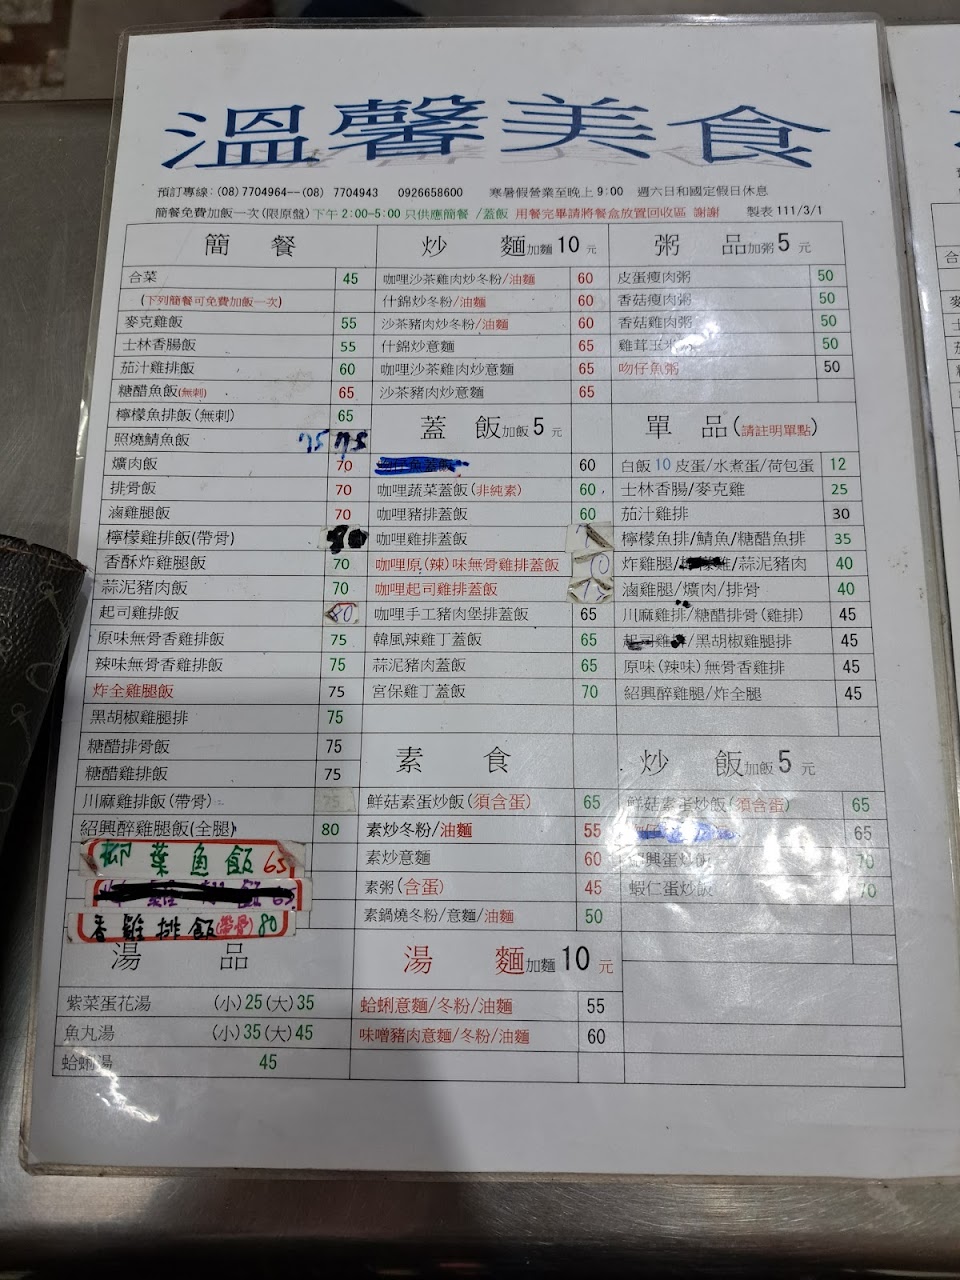 溫馨美食
預訂專線:(08)7704964--(08) 7704943 0926658600 寒暑假營業至晚上9:00 週六日和國定假日休息
簡餐免費加飯一次(限原盤)下午2:00-5:00 只供應簡餐/蓋飯 用餐完畢請將餐盒放置回收區 謝謝 製表111/3/1
簡 餐
合菜 45
(下列簡餐可免費加飯一次)
麥克雞飯 55
士林香腸飯 55
茄汁雞排飯 60
糖醋魚飯(無刺) 65
檸檬魚排飯(無刺) 65
照燒鯖魚飯 75 75
爌肉飯 70
排骨飯 70
滷雞腿飯 70
檸檬雞排飯(帶骨) 80
香酥炸雞腿飯 70
蒜泥豬肉飯 70
起司雞排飯 80
原味無骨香雞排飯 75
辣味無骨香雞排飯 75
炸全雞腿飯 75
黑胡椒雞腿排 75
糖醋排骨飯 75
糖醋雞排飯 75
川麻雞排飯(帶骨) 75
紹興醉雞腿飯(全腿) 80
柳葉魚飯 65
香雞排飯(帶骨) 80
湯 品
紫菜蛋花湯 (小)25(大)35
魚丸湯 (小)35(大)45
蛤蜊湯 45
炒 麵加麵10元
咖哩沙茶雞肉炒冬粉/油麵 60
什錦炒冬粉/油麵 60
沙茶豬肉炒冬粉/油麵 60
什錦炒意麵 65
咖哩沙茶雞肉炒意麵 65
沙茶豬肉炒意麵 65
蓋 飯加飯5元
60
咖哩蔬菜蓋飯(非純素) 60
咖哩豬排蓋飯 60
咖哩雞排蓋飯
咖哩原(辣)味無骨雞排蓋飯
咖哩起司雞排蓋飯
咖哩手工豬肉堡排蓋飯 65
韓風辣雞丁蓋飯 65
蒜泥豬肉蓋飯 65
宮保雞丁蓋飯 70
素 食
鮮菇素蛋炒飯(須含蛋) 65
素炒冬粉/油麵 55
素炒意麵 60
素粥(含蛋) 45
素鍋燒冬粉/意麵/油麵 50
湯 麵加麵10元
蛤蜊意麵/冬粉/油麵 55
味噌豬肉意麵/冬粉/油麵 60
粥 品加粥5元
皮蛋瘦肉粥 50
香菇瘦肉粥 50
香菇雞肉粥 50
雞茸玉米粥 50
吻仔魚粥 50
單 品(請註明單點)
白飯10 皮蛋/水煮蛋/荷包蛋 12
士林香腸/麥克雞 25
茄汁雞排 30
檸檬魚排/鯖魚/糖醋魚排 35
炸雞腿/蒜泥豬肉 40
滷雞腿/爌肉/排骨 40
川麻雞排/糖醋排骨(雞排) 45
/黑胡椒雞腿排 45
原味(辣味)無骨香雞排 45
紹興醉雞腿/炸全腿 45
炒 飯加飯5元
鮮菇素蛋炒飯(須含蛋) 65
65
紹興蛋炒飯 70
蝦仁蛋炒飯 70